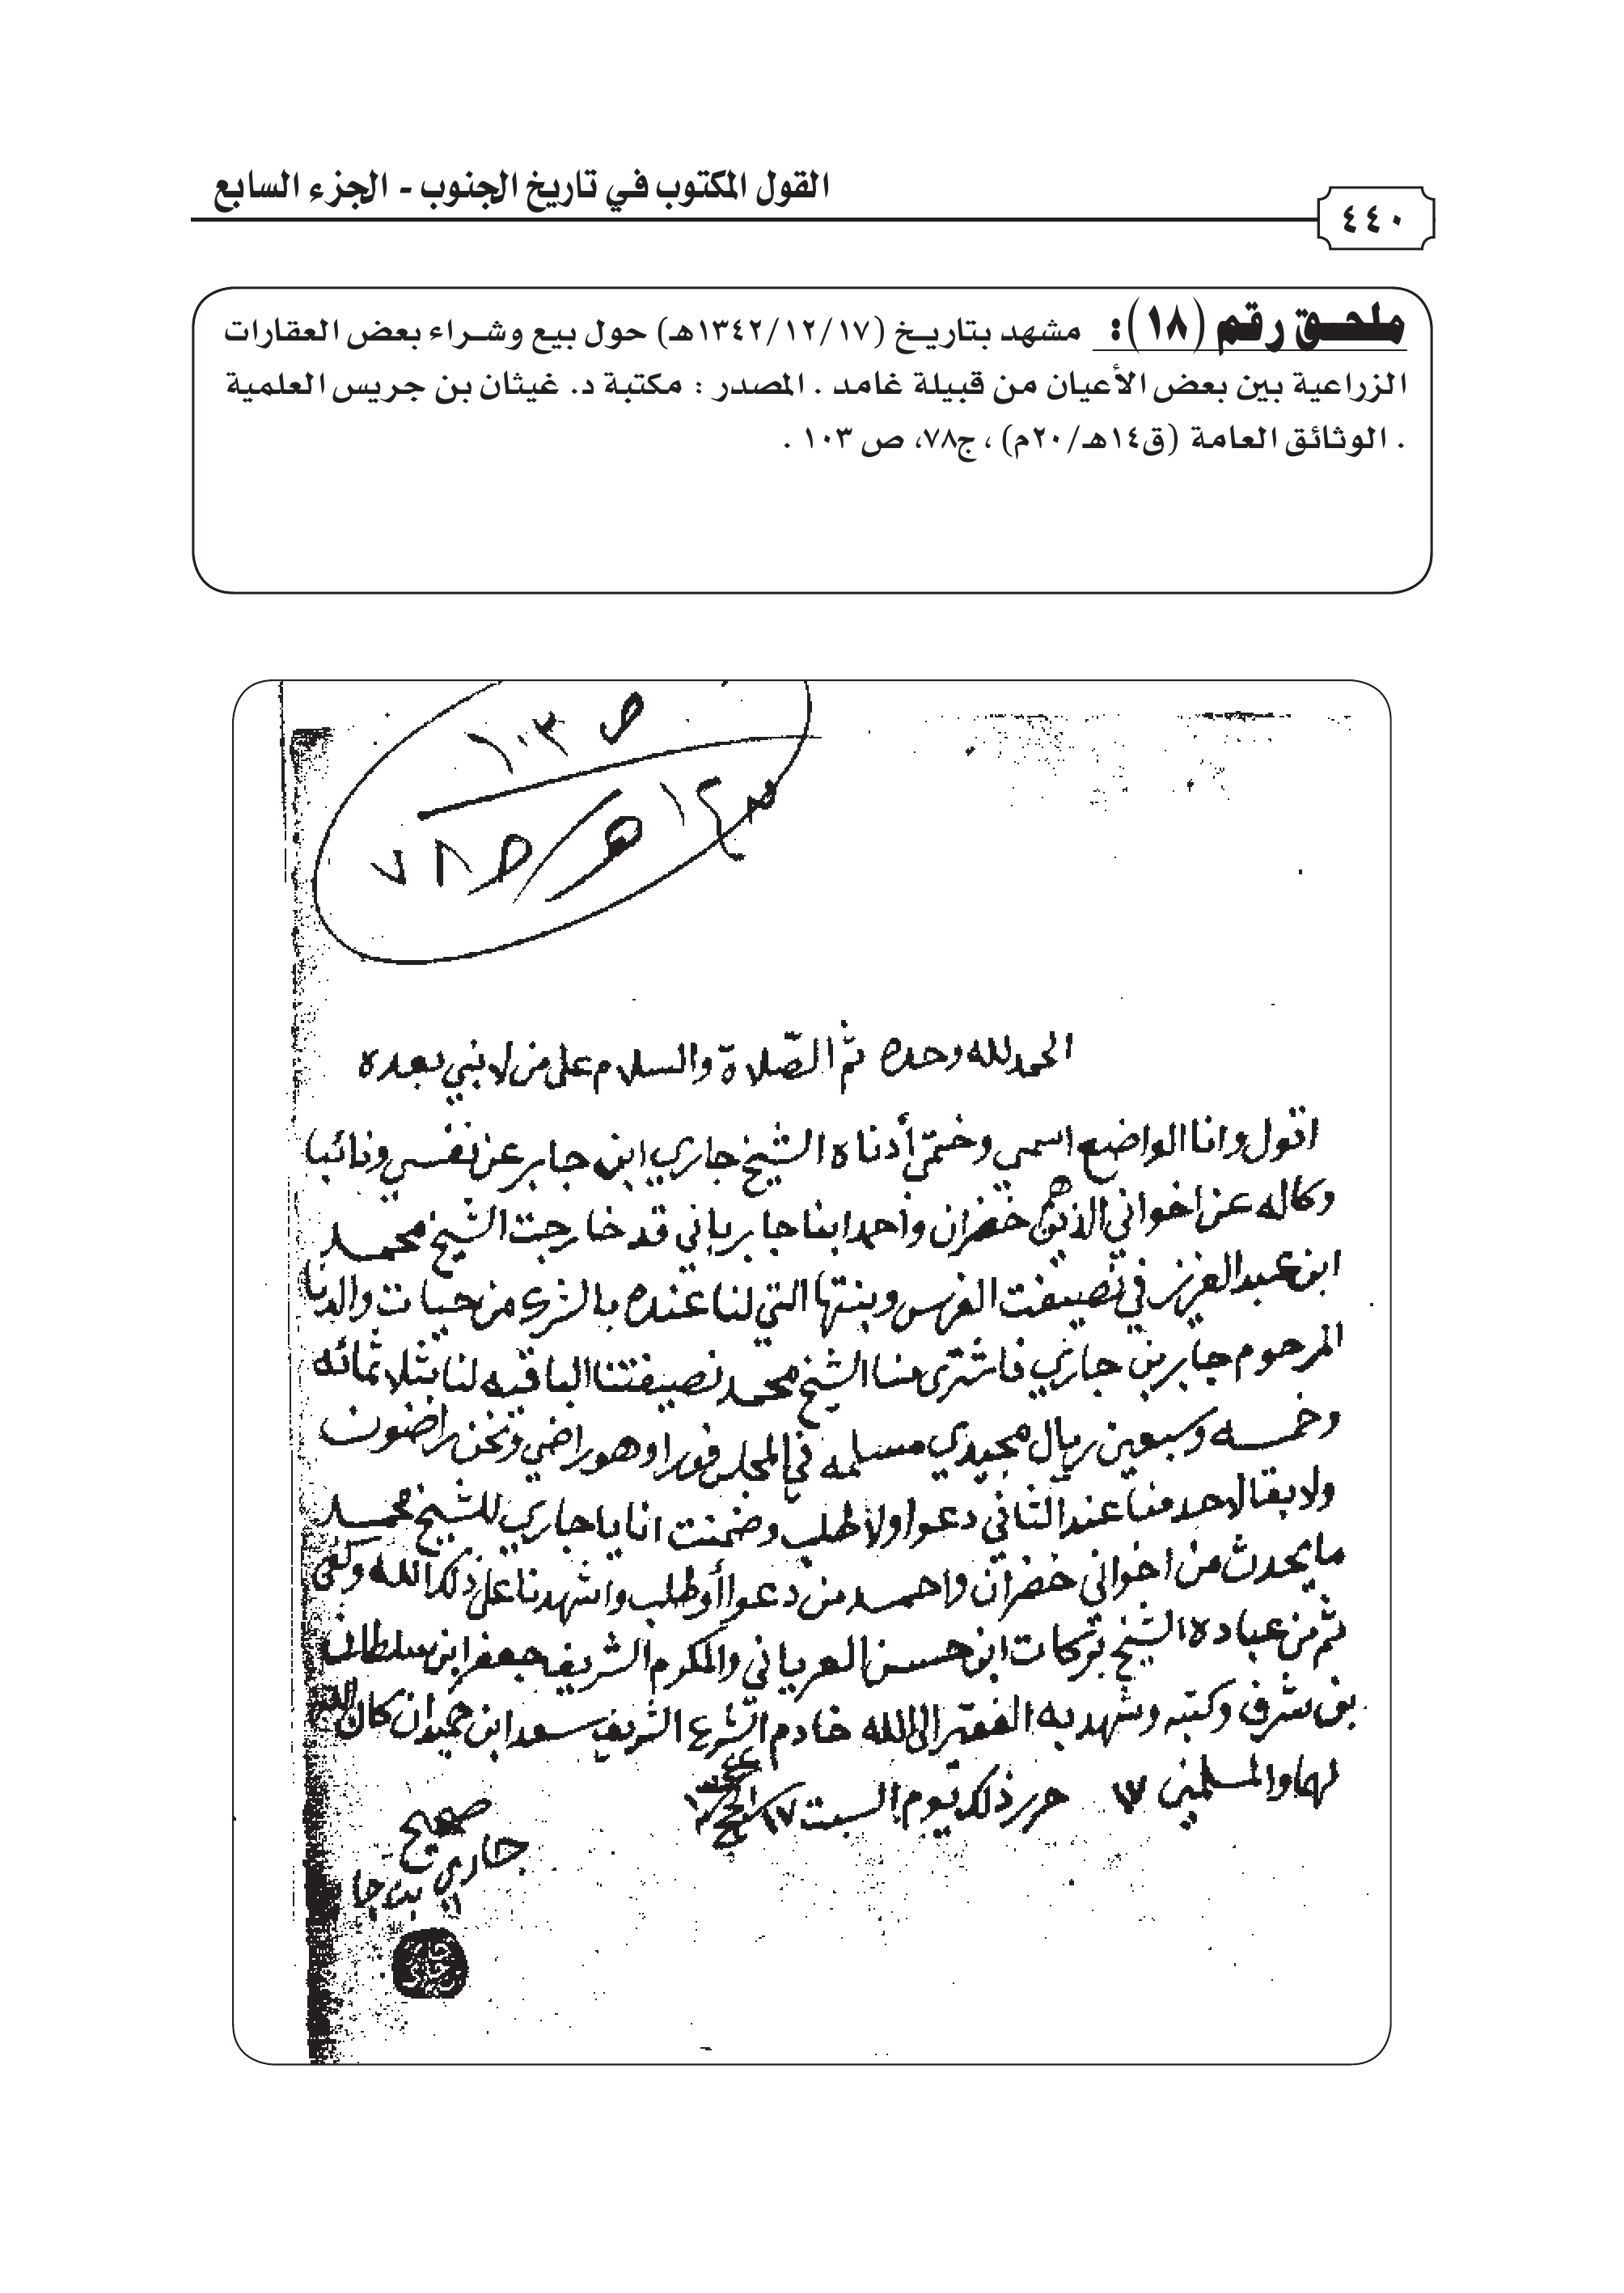 القول المكتوب في تاريخ الجنوب - الجزء السابع
٤٤٠
ملحـق رقم (١٨): مشهد بتاريـخ (١٣٤٢/١٢/١٧هـ) حول بيع وشـراء بعض العقارات
الزراعية بين بعض الأعيان من قبيلة غامد . المصدر : مكتبة د. غيثان بن جريس العلمية
. الوثائق العامة (ق١٤هـ/٢٠م) ، ج٧٨، ص ١٠٣ .
ص ١٠٣
٧٨
الحمد لله وحده ثمّ الصّلاة والسلام على من لا نبي بعده
اقول وانا الواضع اسمي وختمي أدناه الشيخ جاري ابن جابر عن نفسي ونائبا
وكاله عن اخواني الذين هم خضران وأحمد ابنا جابر باني قد خارجت الشيخ محمد
ابن عبد العزيز في نصيفت الغرس وبنتها التي لنا عنده بالشرى من حيات والدنا
المرحوم جابر بن جاري فاشترى منا الشيخ محمد نصيفتنا الباقيه لنا بثلاثمائه
وخمسه وسبعين ريال مجيدي مسلمه في المجلس فورا وهو راضي ونحن راضون
ولا بقا لاحد منا عند الثاني دعوا ولا طلب وضمنت انا يا جاري للشيخ محمد
ما يحدث من اخواني خضران واحمد من دعوا أو طلب واشهدنا على ذلك الله وكفى
ثم من عباده الشيخ بركات ابن حسن العرياني والمكرم الشريف جعفر ابن سلطان
بن شرف وكتبه وشهد به الفقير الى الله خادم الشرع الشريف سعد ابن حميدان كان الله
لهما والمسلمين حرر ذلك يوم السبت ١٧ الحج
صحيح
جاري
بن جا